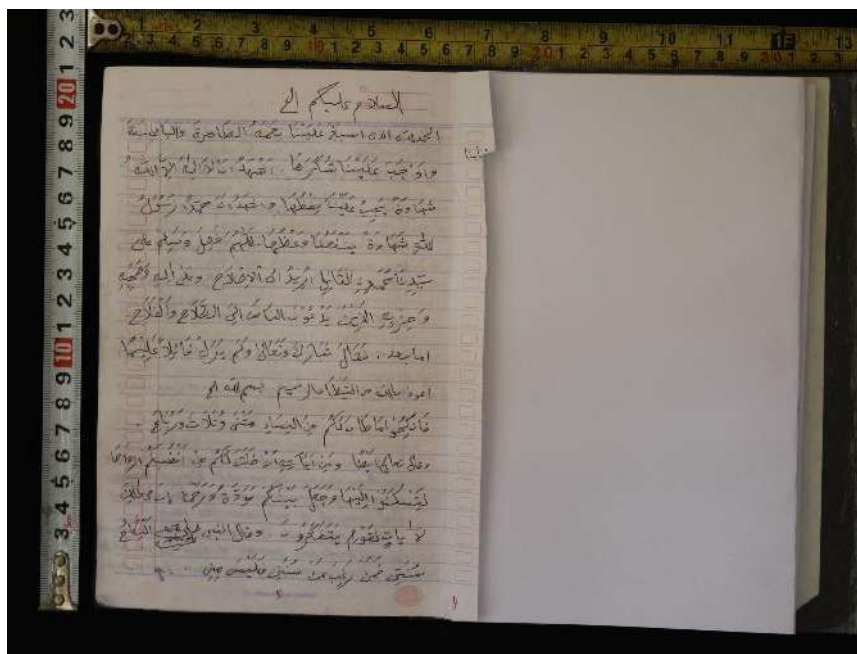 السلام عليكم الخ
الحمد لله الذى اسبغ علينا نعمه الظاهرة والباطنة
وَاوْجَبَ عَلَيْنَا شُكْرَهَا . اشهد ان لا اله الا الله
شهادةً يجب علينا حفظها واشهد ان محمدا رسول
الله شهادة وعظمها . اللهم صل وسلم على
سيدنا محمد اريد الا الاصلاح وعلى اله وصحبه
وحزبه الذين يدعون الناس الى الصلاح والفلاح .
اما بعد . فقال تبارك وتعالى ولم يزل قائلا عليما
اعوذ بالله من الشيطان الرجيم بسم الله الخ
فانكحوا ما طاب لكم من النساء مثنى وثلاث ورباع .
وقال تعالى ايضا ومن اياته ان خلق لكم من انفسكم ازواجا
لتسكنوا اليها وجعل بينكم مودة ورحمة ان فى ذلك
لايات لقوم يتفكرون . وقال النبى النكاح
سنتى فمن رغب عن سنتى فليس منى ..